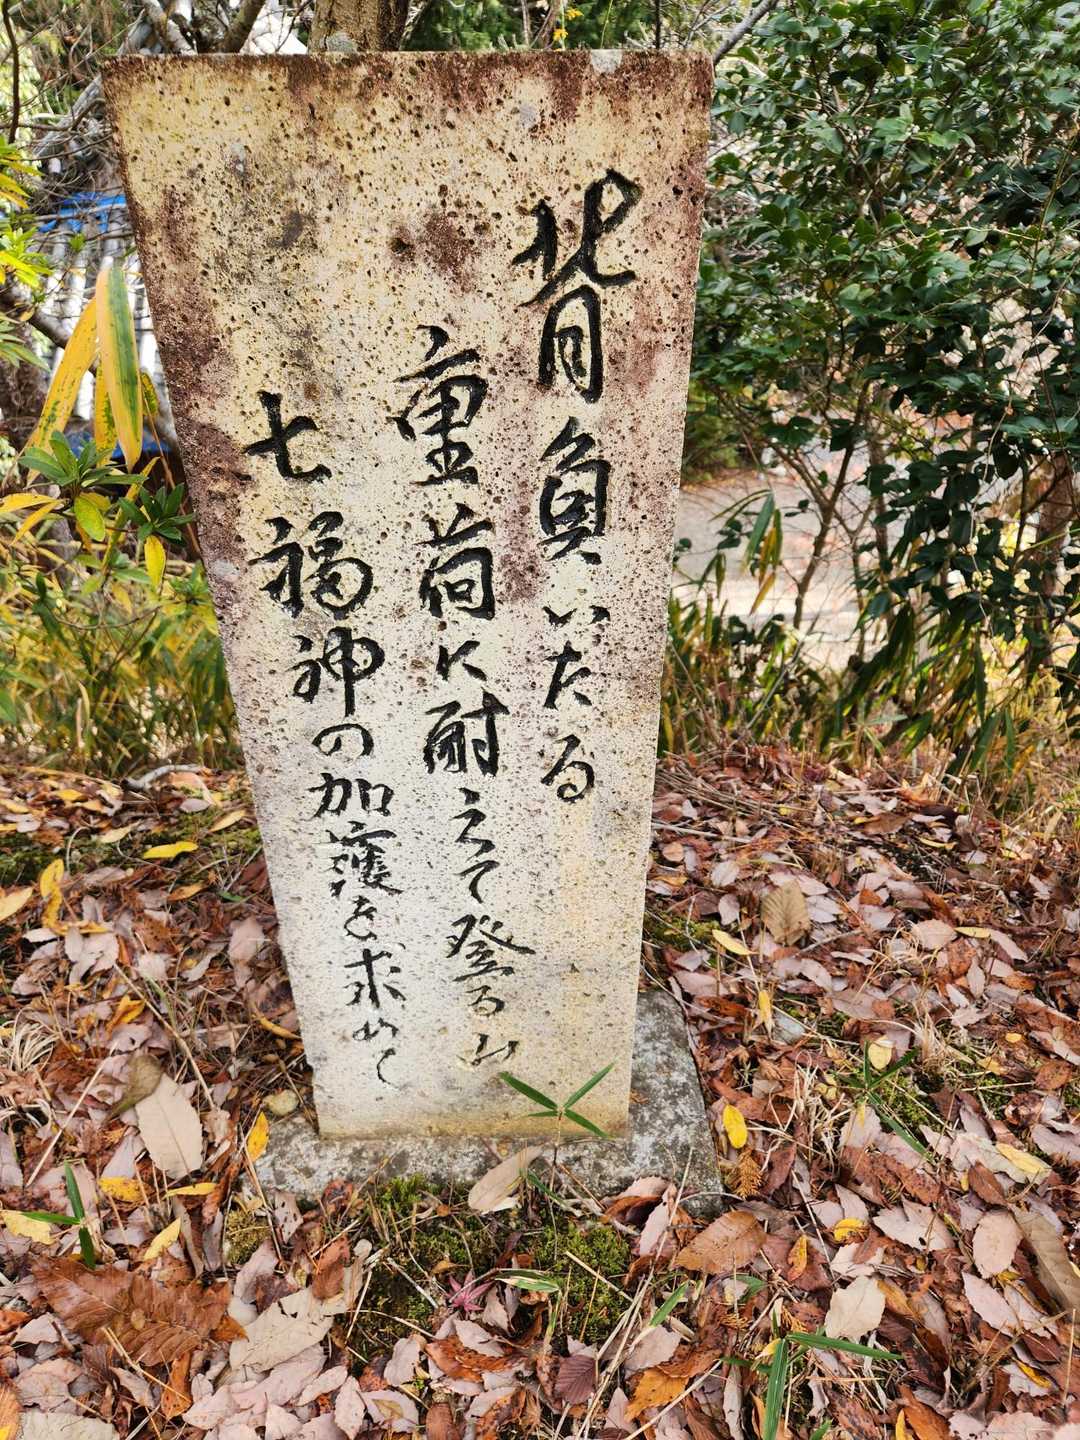 背負いたる
重荷に耐えて登る山
七福神の加護を求めて